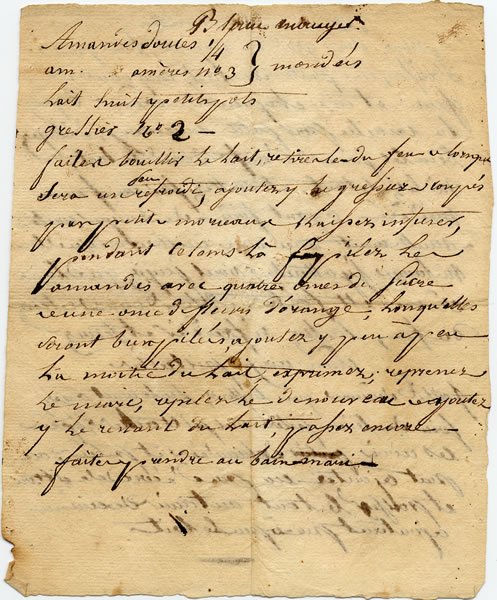 Blanc manger
Amandes douces 1/4
am. amères no 3 } mondées
Lait huit petits pots
gressier No 2 —
faites bouillir le lait, retirez le du feu & lorsque
sera un peu refroidi, ajoutez y le gressier coupés
par petits morceaux & laissez infuser,
pendant ce tems là pilez les
amandes avec quatre onces de sucre
& une once de fleurs d'orange, lorsqu'elles
seront bien pilées ajoutez y peu à peu
la moitié du lait exprimez, reprenez
le marc, repilez le de nouveau & ajoutez
y le restant du lait, passez encore —
faites prendre au bain marie